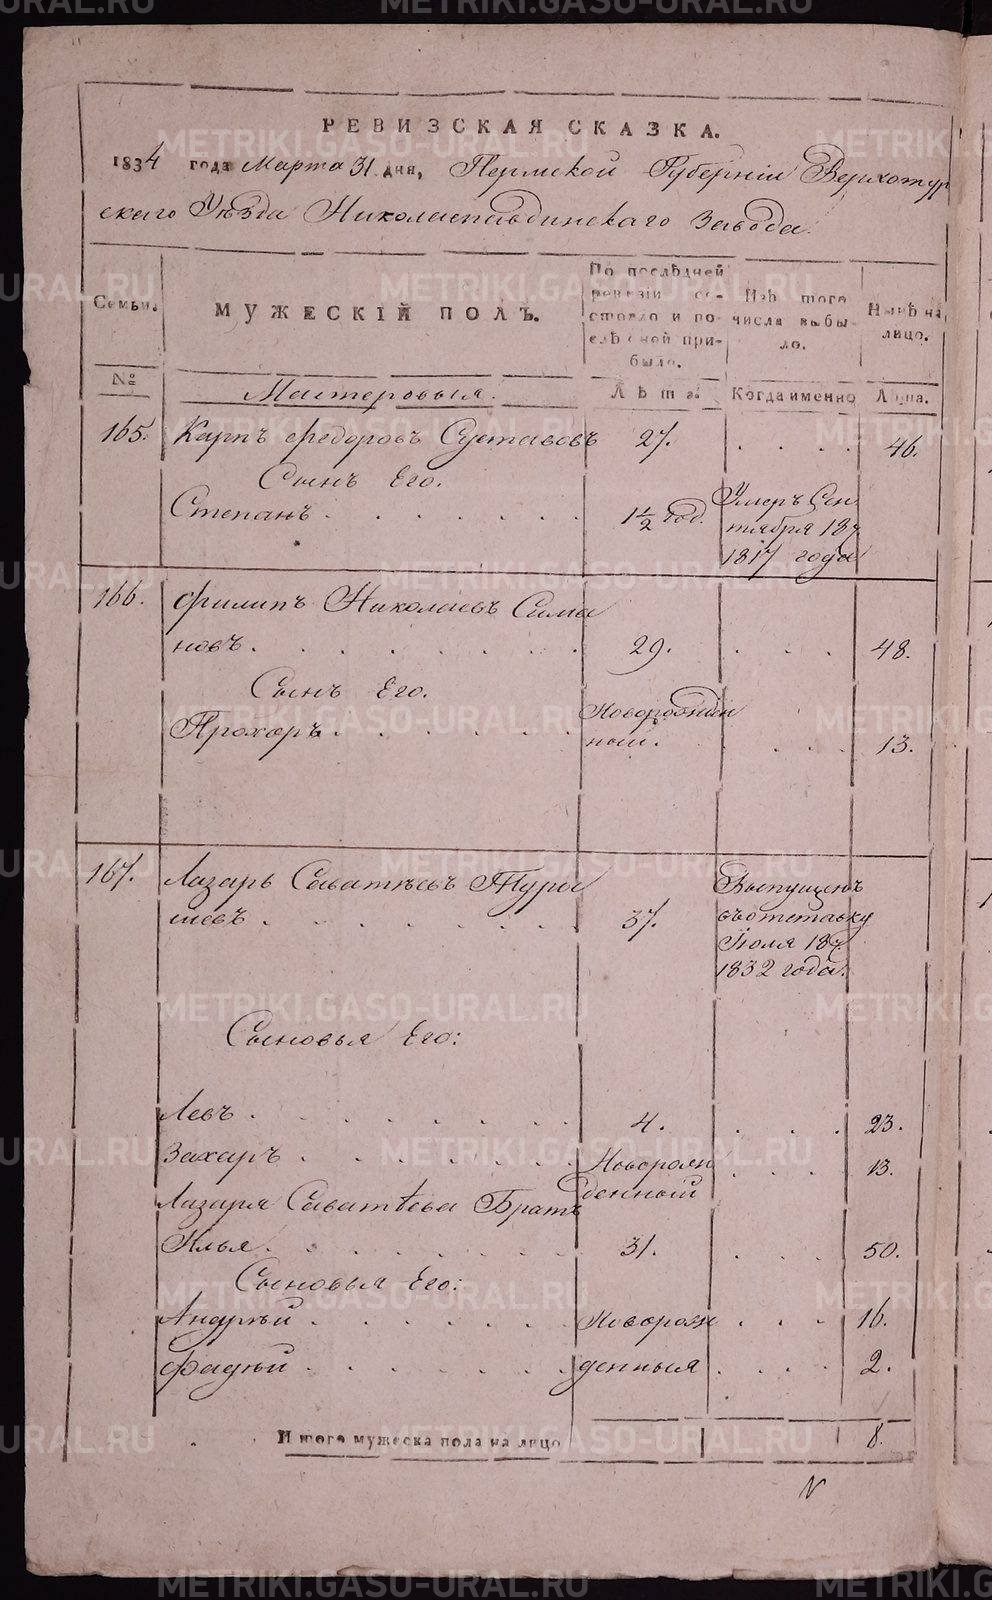 РЕВИЗСКАЯ СКАЗКА.
1834 года Марта 31 дня, Пермской Губерніи Верхотур
скаго Уѣзда Николаепавдинскаго Завода.
Семьи.
МУЖЕСКІЙ ПОЛЪ.
По послѣдней
ревизіи со-
стояло и по-
слѣ оной при-
было.
Изъ того
числа выбы-
ло.
Нынѣ на
лицо.
№
Мастеровыя.
Лѣта.
Когда именно
Лѣта.
165. Карпъ Федоровъ Суставовъ 27. . . . . 46.
Сынъ Его.
Степанъ . . . . . . . 1 1/2 год. Умеръ Сен
тября 18го
1817 года
166. Филипъ Николаевъ Сима
новъ. . . . . . . . 29. . . . 48.
Сынъ Его.
Прохоръ . . . . . . Новорожден
ный. . . . . 13.
167. Лазарь Саватѣевъ Туры
шевъ . . . . . . . . 37. Выпущенъ
въ отставку
Іюля 18го
1832 года.
Сыновья Его:
Левъ . . . . . . . . 4. . . . 23.
Захаръ . . . . . . . Новорож . . . 13.
денный
Лазаря Саватѣева Братъ
Илья. . . . . . . . 31. . . . 50.
Сыновья Его:
Андрѣй . . . . . . Новорож . . . 16.
Фадѣй . . . . . . денныя . . . 2.
Итого мужеска пола на лицо 8.
METRIKI.GASO-URAL.RU